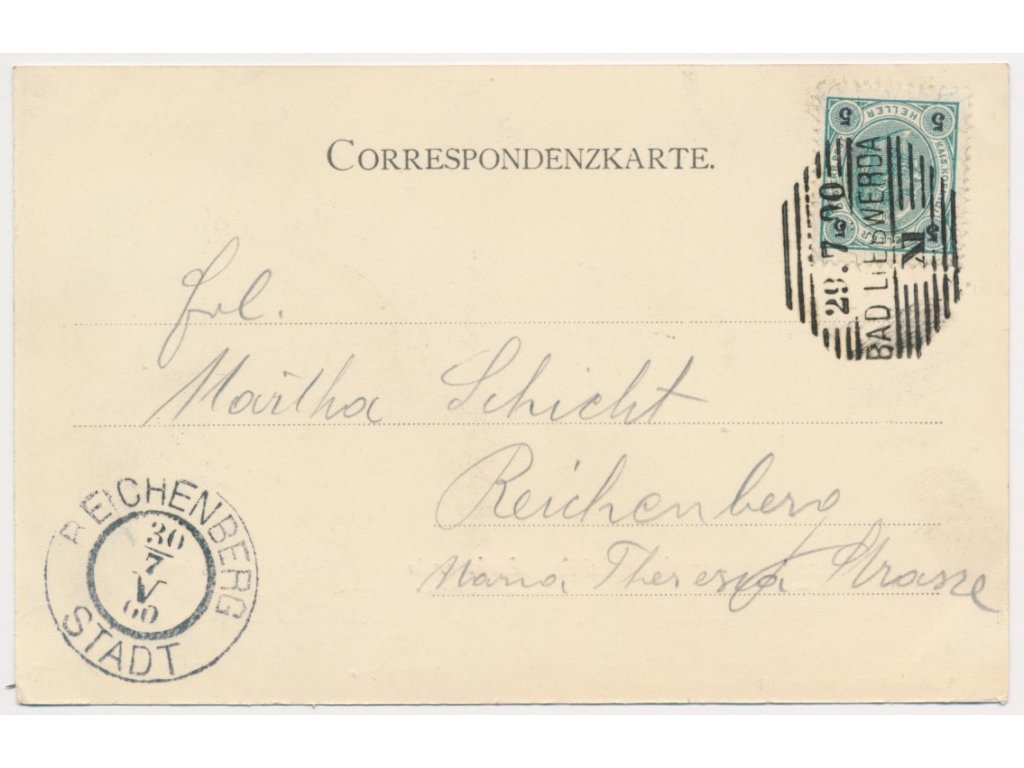 CORRESPONDENZKARTE.
5 HELLER 5
5 5
29.7.00
BAD LIEBWERDA
Frl.
Märtha Schicht
Reichenberg
Maria Theresia Strasse
REICHENBERG
30
7
V
00
STADT